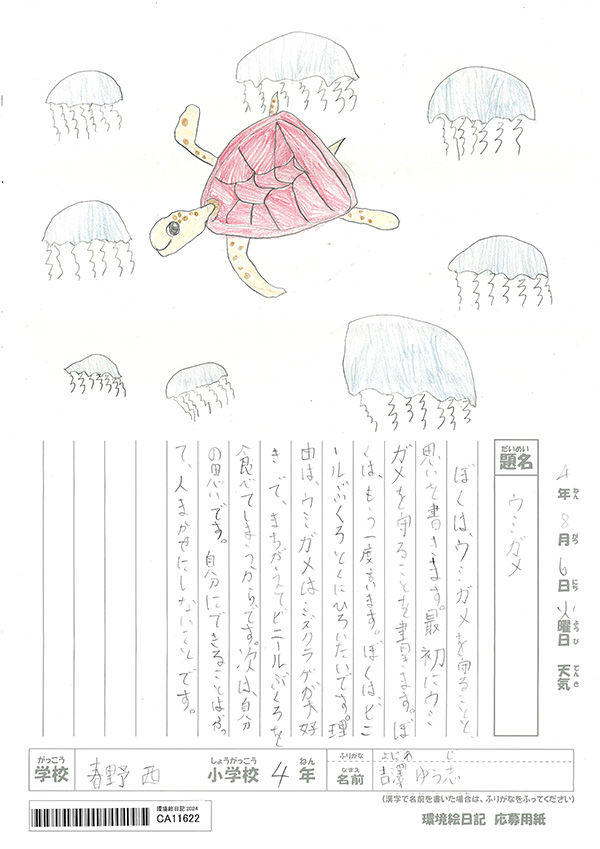 4年 8月 6日 火曜日 天気
ねん がつ にち ようび てんき
だいめい
題名
ウミガメ
ぼくは、ウミガメを守ることと、
思いを書きます。最初にウミ
ガメを守ることを書きます。ぼ
くは、もう一度言います。ぼくは、ビニ
ールぶくろとくにひろいたいです。理
由は、ウミガメはミズクラゲが大好
きで、まちがえてビニールぶくろを
食べてしまうからです。次は、自分
の思いです。自分にできることはやっ
て、人まかせにしないことです。
がっこう しょうがっこう ねん
学校 春野西 小学校 4年
ふりがな よしざわ じ
なまえ
名前 吉澤 ゆう志
(漢字で名前を書いた場合は、ふりがなをふってください)
環境絵日記2024
CA11622
環境絵日記 応募用紙